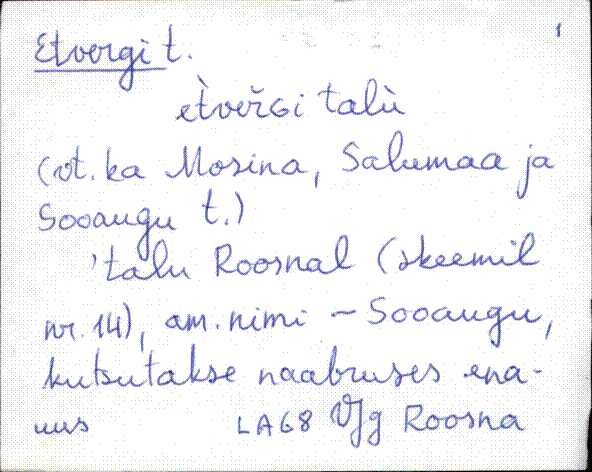 Etvergi t. 1
èt̀veřɢi talù
(vt. ka Mosina, Salumaa ja
Sooaugu t.)
'talu Roosnal (skeemil
nr. 14), am. nimi - Sooaugu,
kutsutakse naabruses ena-
uus LA68 VJg Roosna